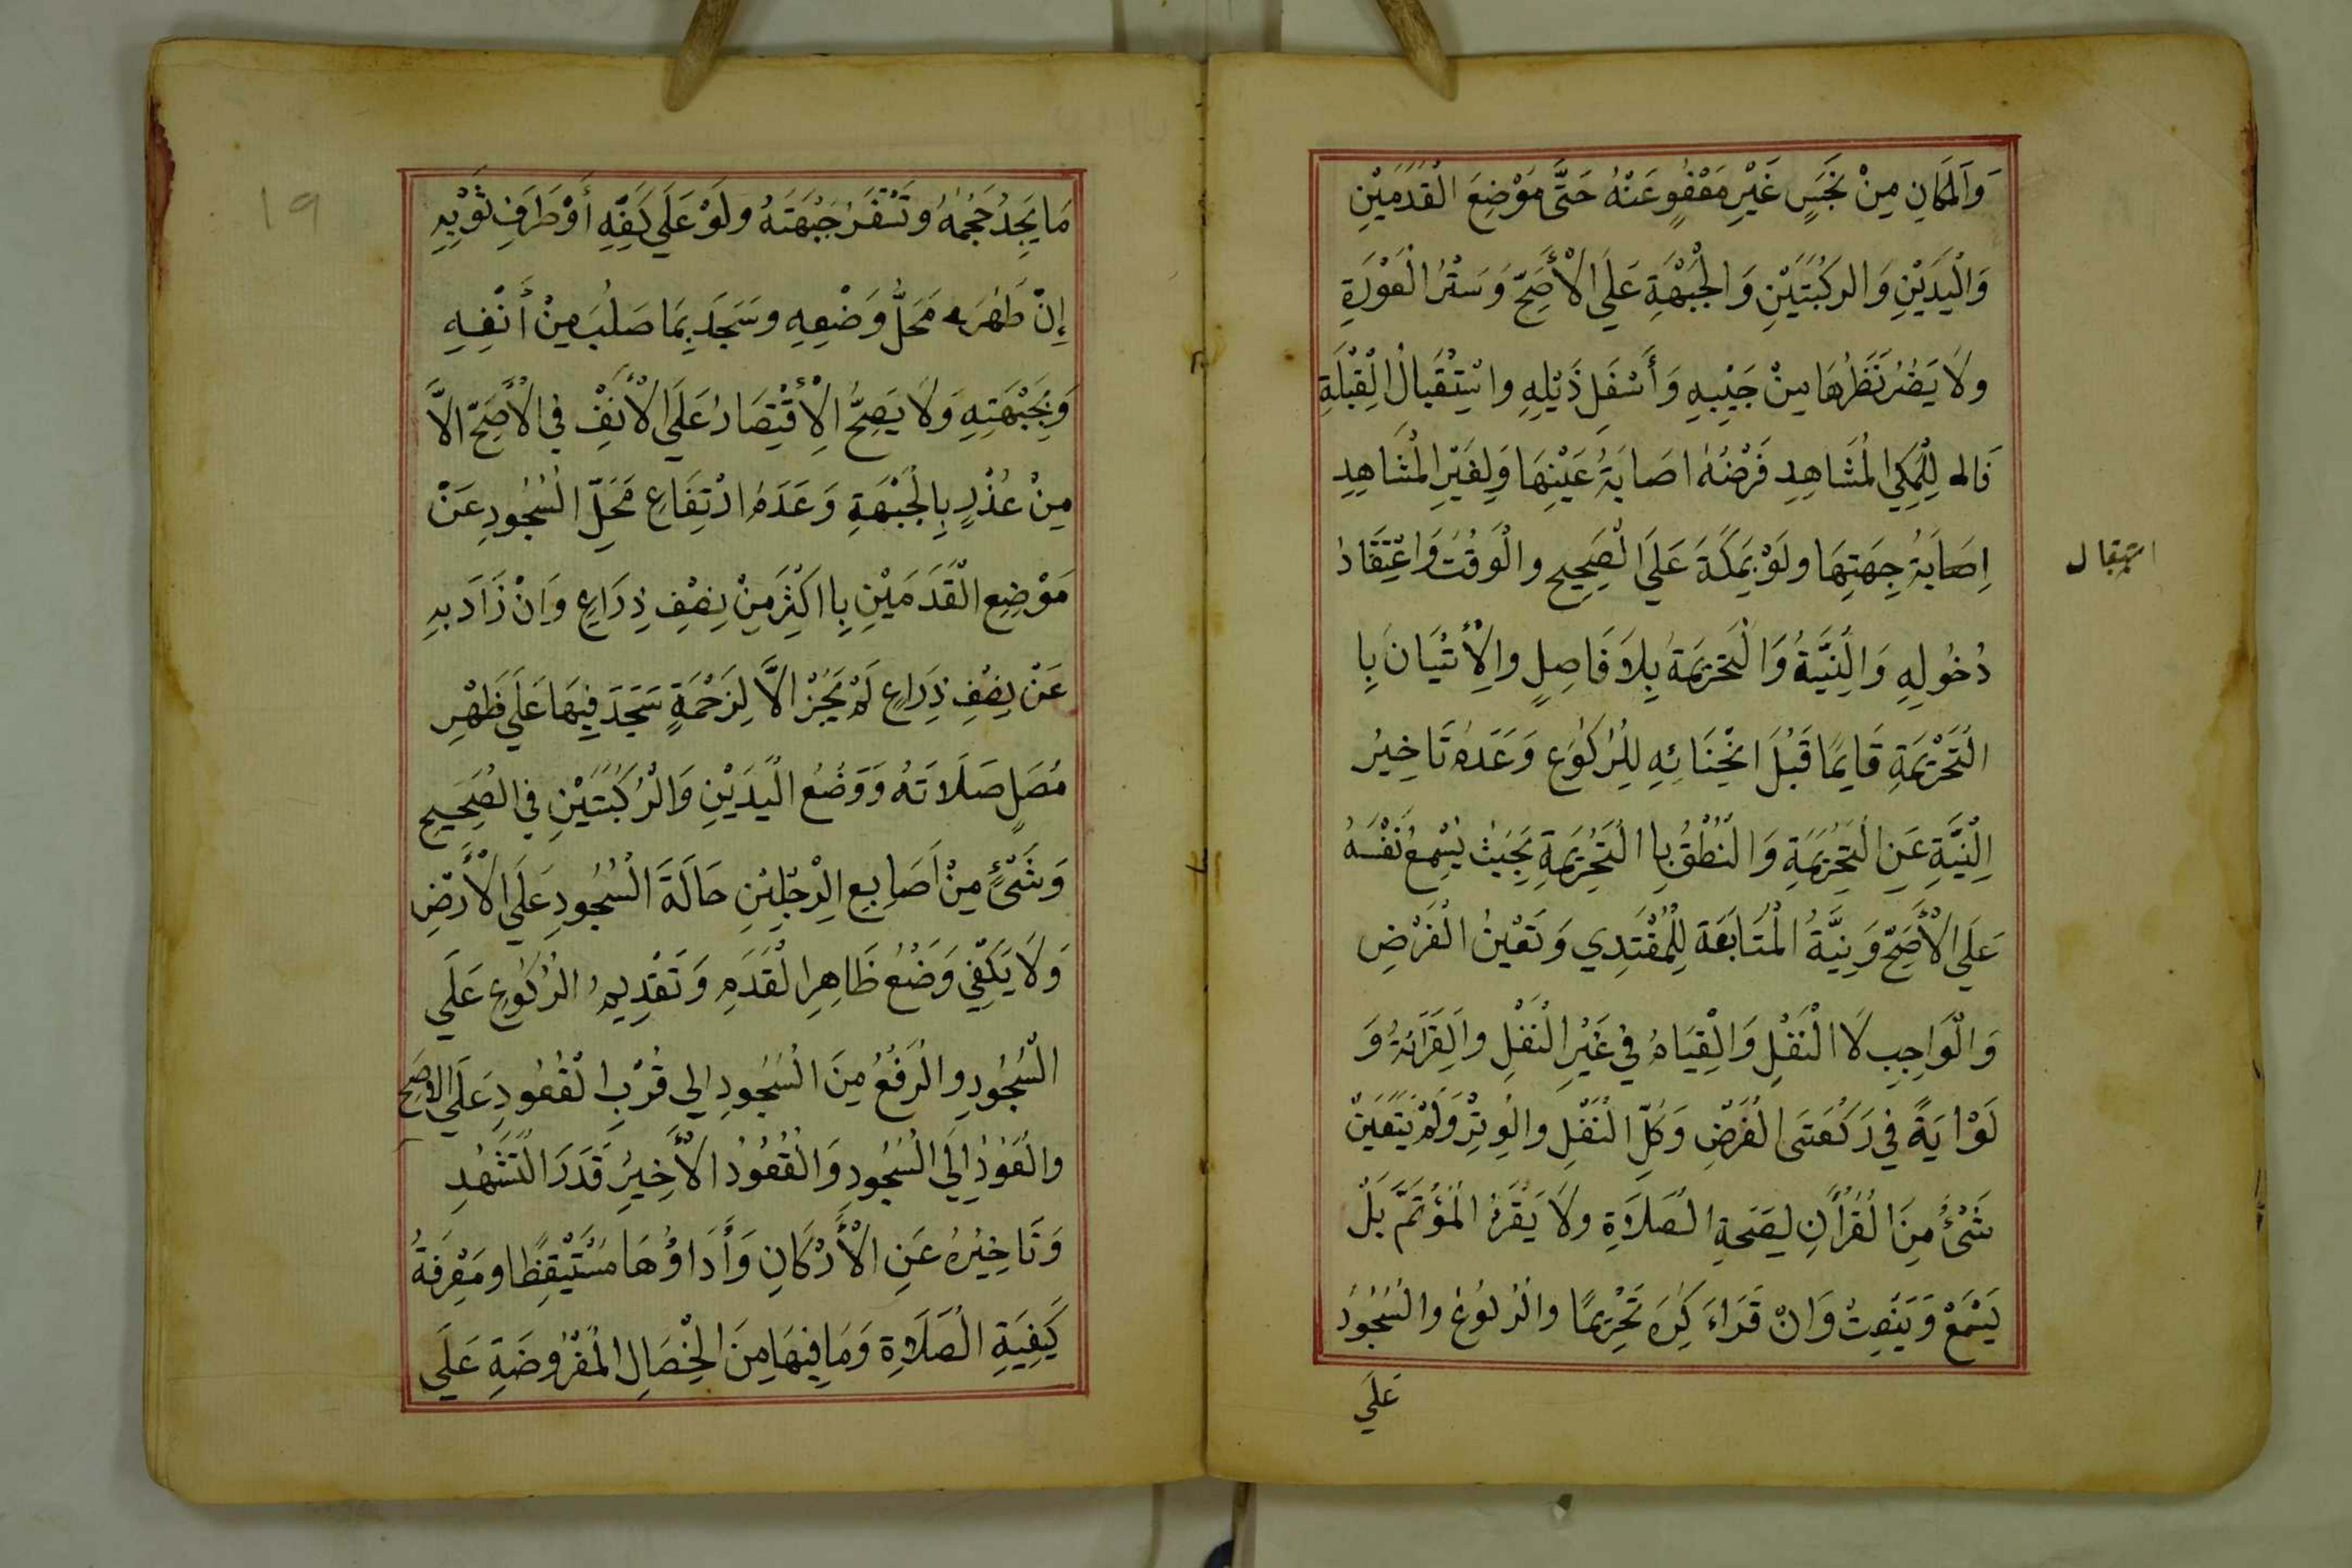 وَالْمَكَانِ مِنْ نَجَسٍ غَيْرِ مَعْفُوٍ عَنْهُ حَتَّى مَوْضِعَ الْقَدَمَيْنِ
وَالْيَدَيْنِ وَالرُكْبَتَيْنِ وَالْجَبْهَةِ عَلَى الْأَصَحِّ وَسَتْرُ الْعَوْرَةِ
ولَا يَضُرُ نَظَرُهَا مِنْ جَيْبِهِ وَأَسْفَلِ ذَيْلِهِ واسْتِقْبَالُ الْقِبْلَةِ
لِلْمَكِي الْمُشَاهِدِ فَرْضُهُ اصَابَةُ عَيْنِهَا وَلِغَيْرِ الْمُشَاهِدِ
اِصَابَةُ جِهَتِهَا ولَوْ بِمَكَةَ عَلَى الْصَحِيحِ والْوَقْتُ وَاعْتِقَادُ
استقبال
دُخُولِهِ وَالْنِيَّةُ وَالْتَحْرِيمَةُ بِلَا فَاصِلٍ والْإِتْيَانُ بِا
الْتَحْرِيْمَةِ قَايِمًا قَبْلَ انْحِنَائِهِ لِلْرُكُوعِ وَعَدَمُ تَاخِيرُ
الْنِيَّةِ عَنِ الْتَحْرِيْمَةِ وَالْنُطْقُ بِا الْتَحْرِيْمَةِ بِحَيْثُ يُسْمِعُ نَفْسَهُ
عَلَى الْأَصَحِّ وَنِيَّةُ الْمُتَابَعَةِ لِلْمُقْتَدِي وَتَعْيِينُ الْفَرْضِ
وَالْوَاجِبِ لَا الْنَفْلِ وَالْقِيَامُ فِي غَيْرِ الْنَفْلِ والْقِرَائَةُ وَ
لَوْ ايَةً فِي رَكْعَتَى الْفَرْضِ وَكُلِّ الْنَفْلِ والْوِتْرِ وَلَمْ يَتَعَيَنْ
شَىْءُ مِنَ الْقُرْأنِ لِصِحَةِ الْصَلَاةِ ولَا يَقْرَءُ الْمُؤْتَمَّ بَلْ
يَسْمَعُ وَيَنْصِتُ وَانْ قَرَاءَ كُرِهَ تَحْرِيمًا والْرُكُوعُ والْسُجُودُ
عَلَي
١٩
مَا يَجِدُ حَجْمَهُ وتَسْتَقِرُ جَبْهَتَهُ ولَوْ عَلَي كَفِّهِ أَوْ طَرَفِ ثَوْبِهِ
إِنْ طَهُرَ مَحَلُّ وَضْعِهِ وسَجَدَ بِمَا صَلُبَ مِنْ أَنْفِهِ
وَبِجَبْهَتِهِ وَلَا يَصِحُّ الْأِقْتِصَارُ عَلَى الْأَنْفِ فِي الْأَصَحِّ الاَّ
مِنْ عُذْرٍ بِالْجَبْهَةِ وَعَدَمُ ارْتِفَاعِ مَحَلِّ الْسُجُودِ عَنْ
مَوْضِعِ الْقَدَمَيْنِ بِا اكْثَرَ مِنْ نِصْفِ ذِرَاعٍ وَانْ زَادَ بِهِ
عَنْ نِصْفِ ذِرَاعٍ لَمْ يَجُزْ الاَّ لِزَحْمَةٍ سَجَدَ فِيهَا عَلَي ظَهْرِ
مُصَلٍ صَلَاتَهُ وَوَضْعُ الْيَدَيْنِ وَالْرُكْبَتَيْنِ فِي الْصَحِيحِ
وَشَىْءٍ مِنْ اَصَابِعِ الْرِجْلَيْنِ حَالَةَ الْسُجُودِ عَلَي الْأَرْضِ
وَلَا يَكْفِي وَضْعُ ظَاهِرِ الْقَدَمِ وَتَقْدِيمُ الْرُكُوعِ عَلَي
الْسُجُودِ والْرَفْعُ مِنَ الْسُجُودِ الِي قُرْبِ الْقُعُودِ عَلَي الاصَح
والْعَوْدُ اِلَي الْسُجُودِ وَالْقُعُودُ الْأَخِيرُ قَدَرَ الْتَشَهُدِ
وَتَاخِيْرُهُ عَنِ الْأَرْكَانِ وَأَدَاؤُهَا مُسْتَيْقِظًا ومَعْرِفَةُ
كَيْفِيَةِ الْصَلَاةِ وَمَا فِيهَا مِنَ الْخِصَالِ الْمَفْرُوضَةِ عَلَي